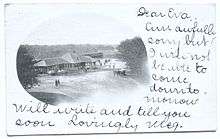 Dear Eva,
Am awfully
sorry but
I will not
be able to
come
down to-
morrow
Will write and tell you
soon Lovingly Meg.